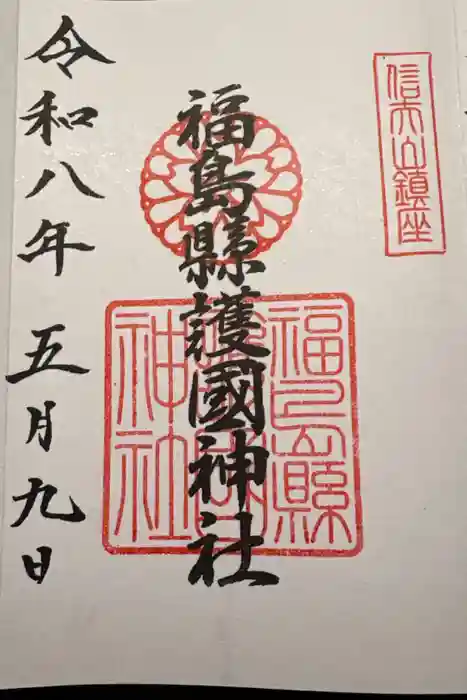 信夫山鎮座
福島縣護國神社
福島縣
護國
神社
令和八年 五月九日